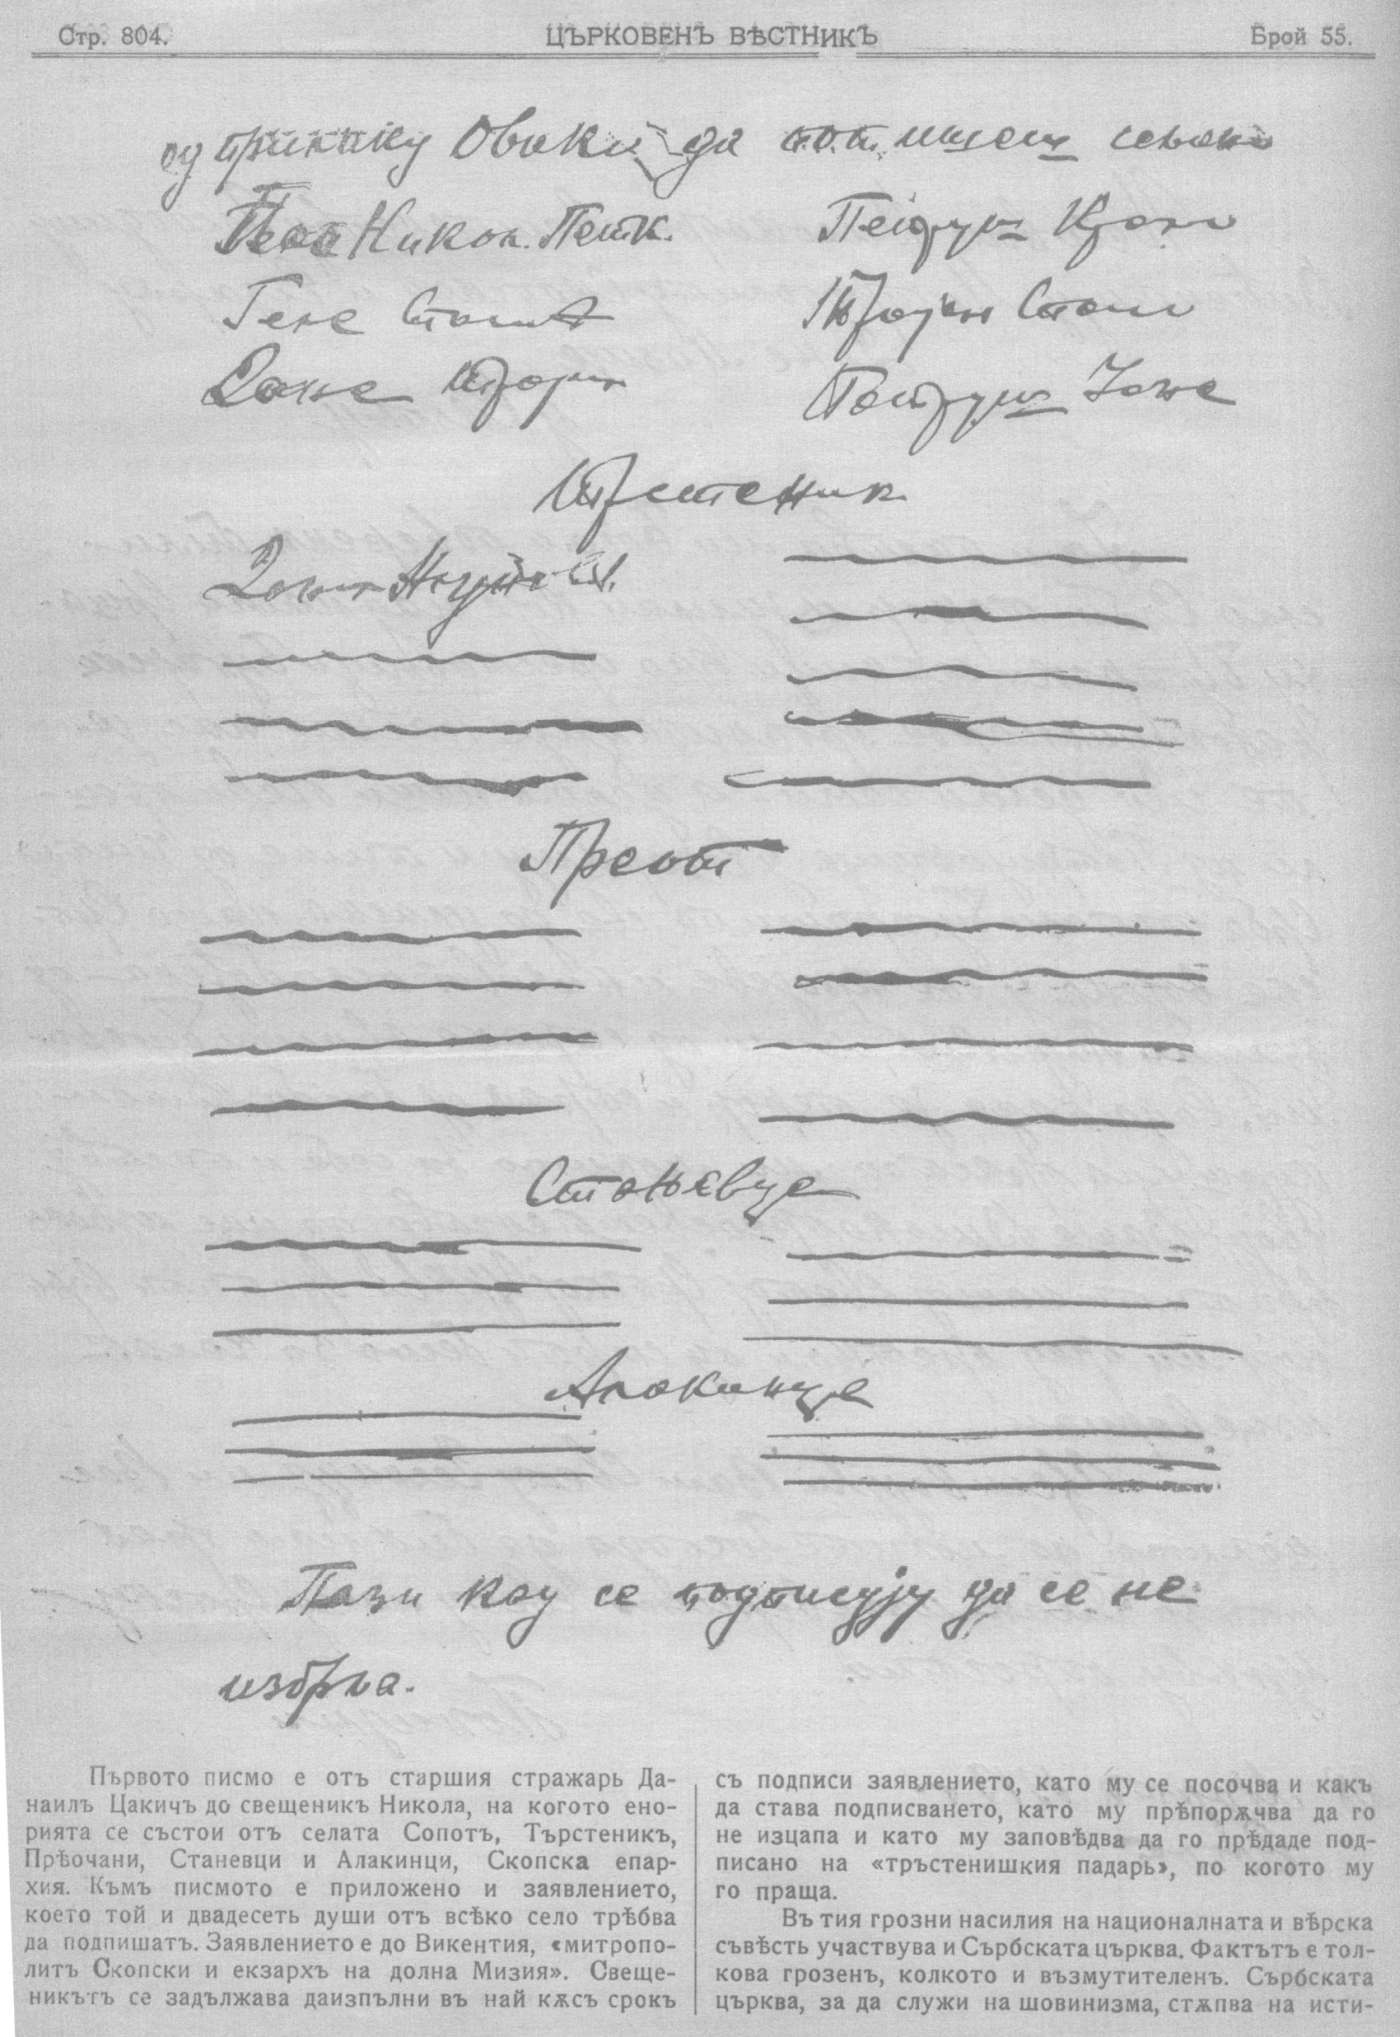 Стр. 804.
ЦЪРКОВЕНЪ ВѢСТНИКЪ
Брой 55.
од прилику Оваки да
Никол. Петк.
Геле
Преот
Стањевце
Алакинце
Пази кад се подписују да се не
избрља.
Първото писмо е отъ старшия стражарь Да-
наилъ Цакичъ до свещеникъ Никола, на когото ено-
рията се състои отъ селата Сопотъ, Търстеникъ,
Прѣочани, Станевци и Алакинци, Скопска епар-
хия. Къмъ писмото е приложено и заявлението,
което той и двадесеть души отъ всѣко село трѣбва
да подпишатъ. Заявлението е до Викентия, «митропо-
литъ Скопски и екзархъ на долна Мизия». Свеще-
никътъ се задължава даизпълни въ най кѫсъ срокъ
съ подписи заявлението, като му се посочва и какъ
да става подписването, като му прѣпорѫчва да го
не изцапа и като му заповѣдва да го прѣдаде под-
писано на «тръстенишкия падарь», по когото му
го праща.
Въ тия грозни насилия на националната и вѣрска
съвѣсть участвува и Сърбската църква. Фактътъ е тол-
кова грозенъ, колкото и възмутителенъ. Сърбската
църква, за да служи на шовинизма, стѫпва на исти-